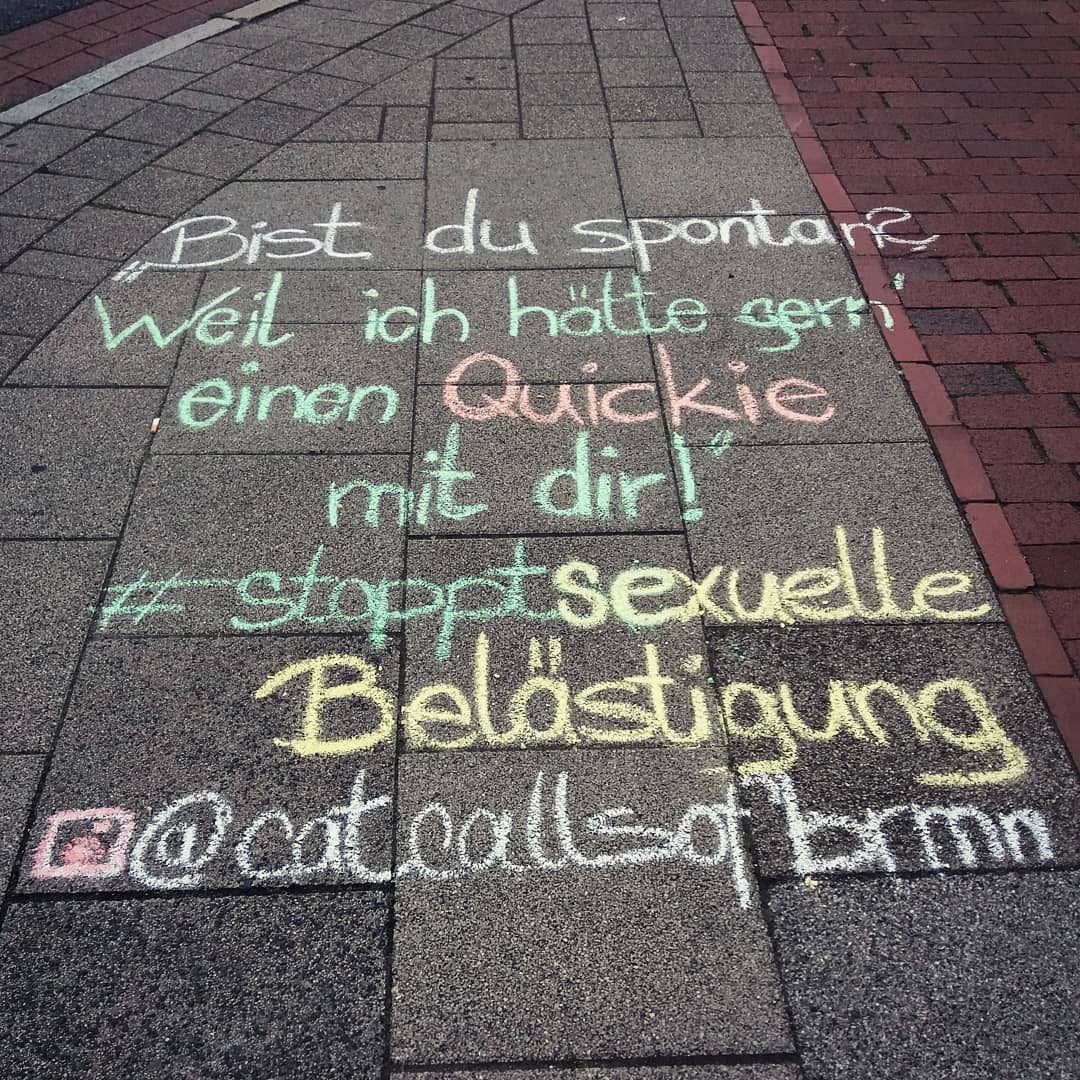 „Bist du spontan?
Weil ich hätte gern'
einen Quickie
mit dir!“
#stopptsexuelle
Belästigung
@catcallsofbrmn